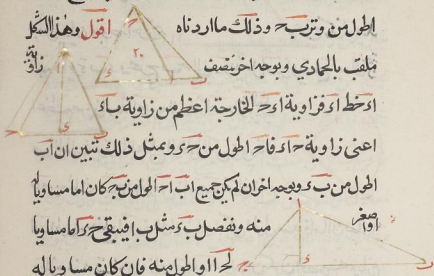 اطول من وتر بح وذلك ما اردناه اقول وهذا الشكل
ملقب بالحماري وبوجه اخر ننصف زاوية
اء خط اء فزاوية اءح الخارجة اعظم من زاوية باء
اعنى زاوية حاء فاح اطول من حء وبمثل ذلك تبين ان اب
اطول من بء وبوجه اخر ان لم يكن جميع اب اح اطول من بح كان اما مساويا له
او اصغر منه ونفصل بء مثل با فيبقى حء اما مساويا
لحا او اطول منه فان كان مساويا له